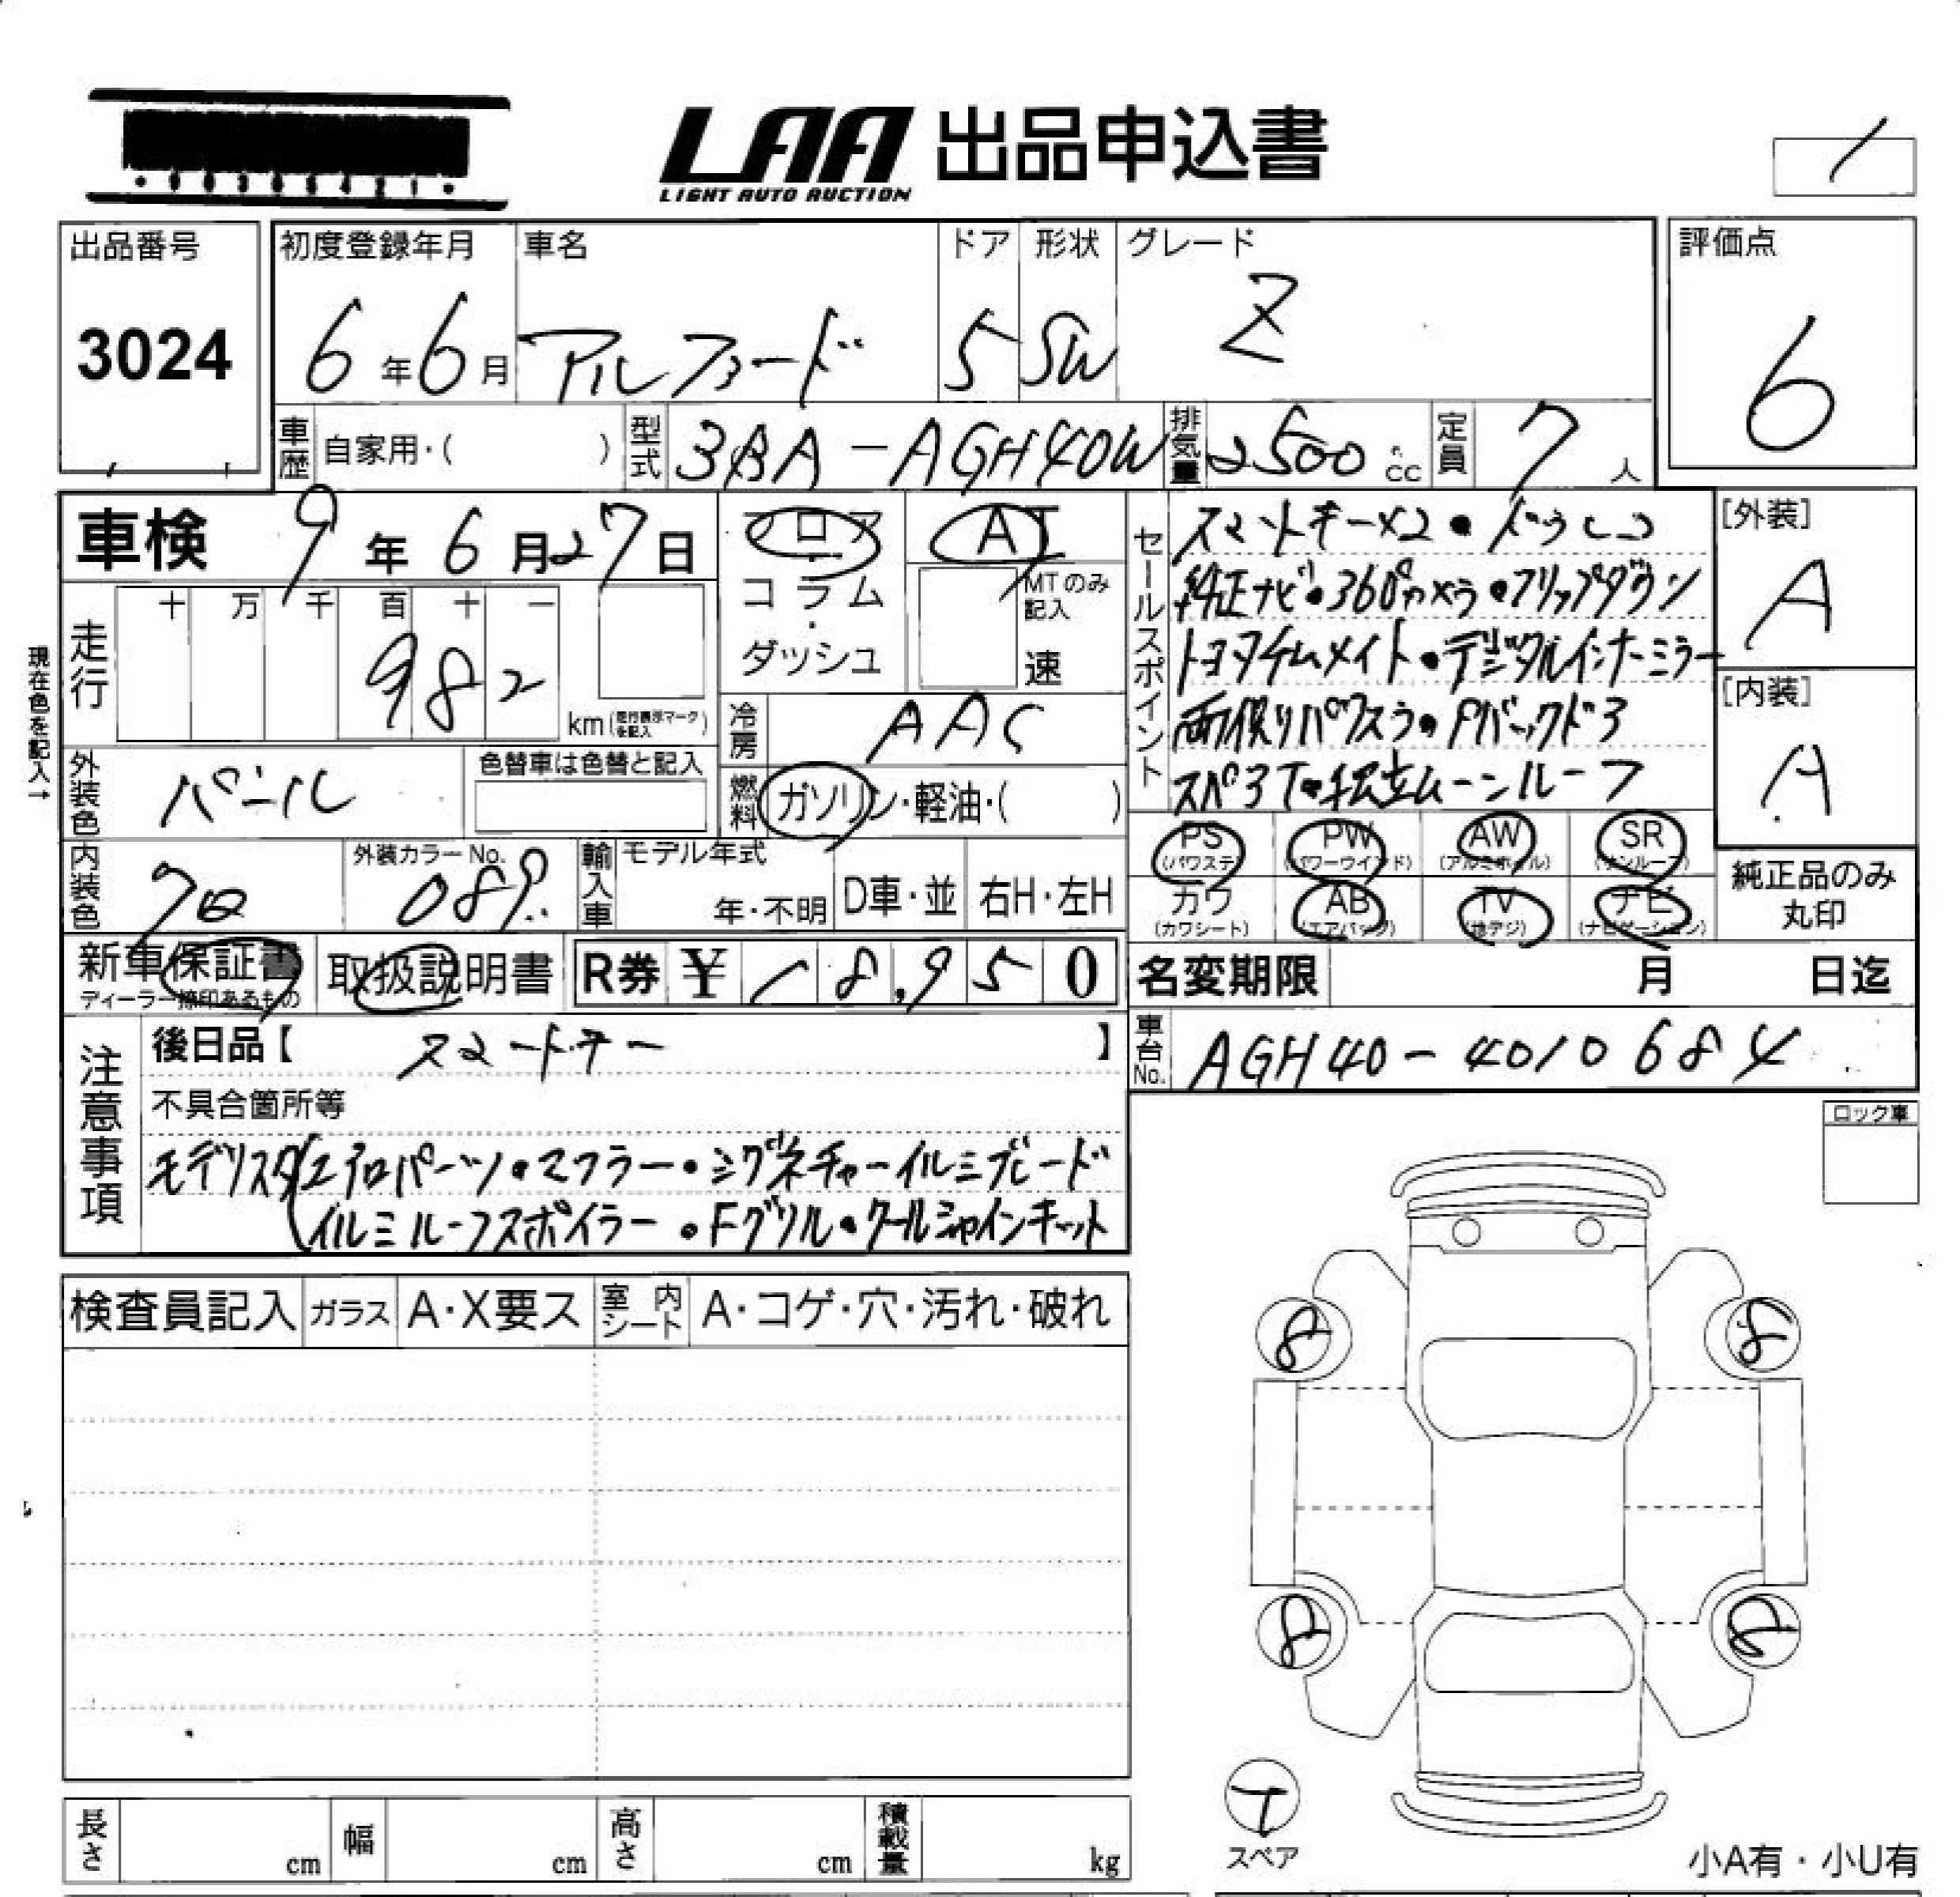 LAA 出品申込書
LIGHT AUTO AUCTION
出品番号
3024
初度登録年月
6年6月
車名
アルファード
ドア
5
形状
SW
グレード
Z
評価点
6
車歴 自家用・( )
型式 3BA-AGH40W
排気量 2500cc
定員 7人
車検 9年6月27日
フロア・コラム・ダッシュ
AT
MTのみ記入
速
セールスポイント
スマートキー×2・ドラレコ
純正ナビ・360°カメラ・フリップダウン
トヨタチムメイト・デジタルインナーミラー
両側リパワスラ・Pバックドア
スペアT・独立ムーンルーフ
[外装]
A
[内装]
A
現在色を記入→
走行
十 万 千 百 十 一
982
km(走行表示マークを記入)
冷房 AAC
燃料 ガソリン・軽油・( )
外装色 パール
色替車は色替と記入
内装色 クロ
外装カラーNo. 089
輸入車
モデル年式
年・不明
D車・並
右H・左H
PS (パワステ)
PW (パワーウインド)
AW (アルミホイル)
SR (サンルーフ)
カワ (カワシート)
AB (エアバッグ)
TV (地デジ)
ナビ (ナビゲーション)
純正品のみ丸印
新車保証書
ディーラー捺印あるもの
取扱説明書
R券 ¥18,950
名変期限 月 日迄
車台No. AGH40-4010684
注意事項
後日品【 スマートキー 】
不具合箇所等
モデリスタ(エアロパーツ・マフラー・シグネチャーイルミブレード
イルミルーフスポイラー・Fグリル・クールシャインキット
ロック車
検査員記入
ガラス A・X要ス
室内シート A・コゲ・穴・汚れ・破れ
8
8
8
8
T
スペア
長さ cm
幅 cm
高さ cm
積載量 kg
小A有・小U有